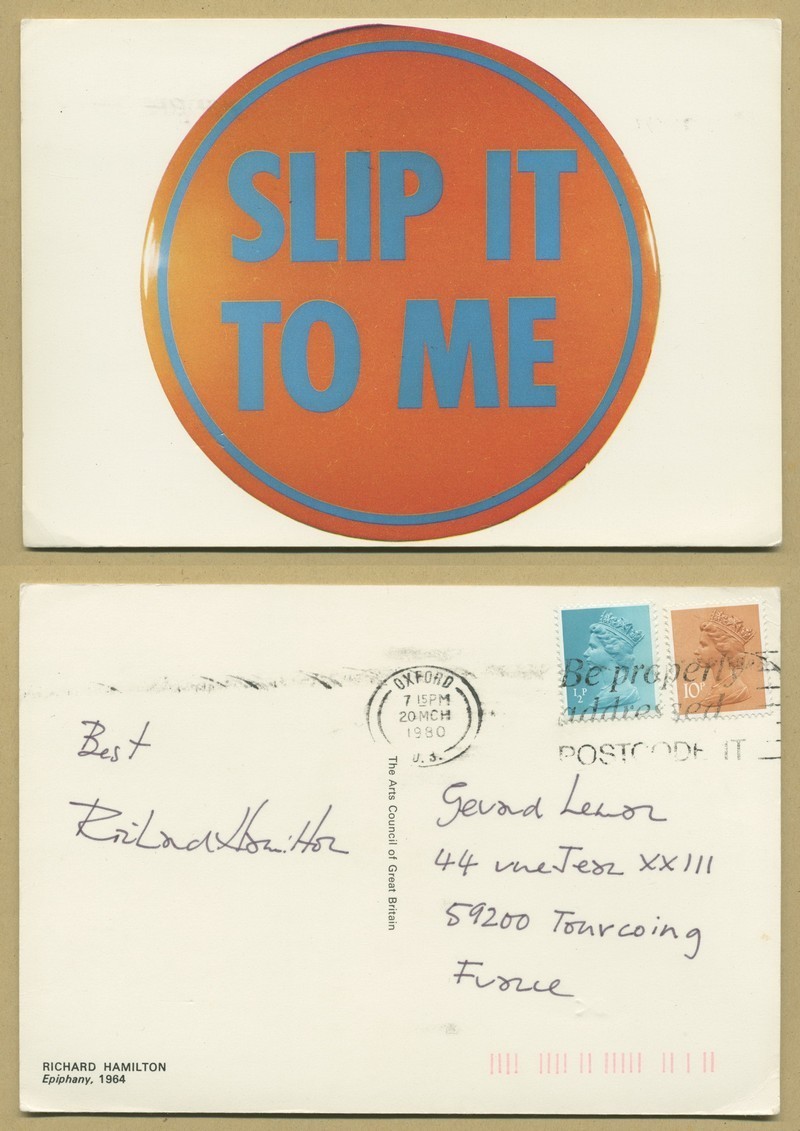 SLIP IT
TO ME
OXFORD
7 15PM
20 MCH
1980
½P
10P
Be properly
addressed
POSTCODE IT
Best
Richard Hamilton
The Arts Council of Great Britain
Gerard
44 rue Jean XXIII
59200 Tourcoing
France
RICHARD HAMILTON
Epiphany, 1964